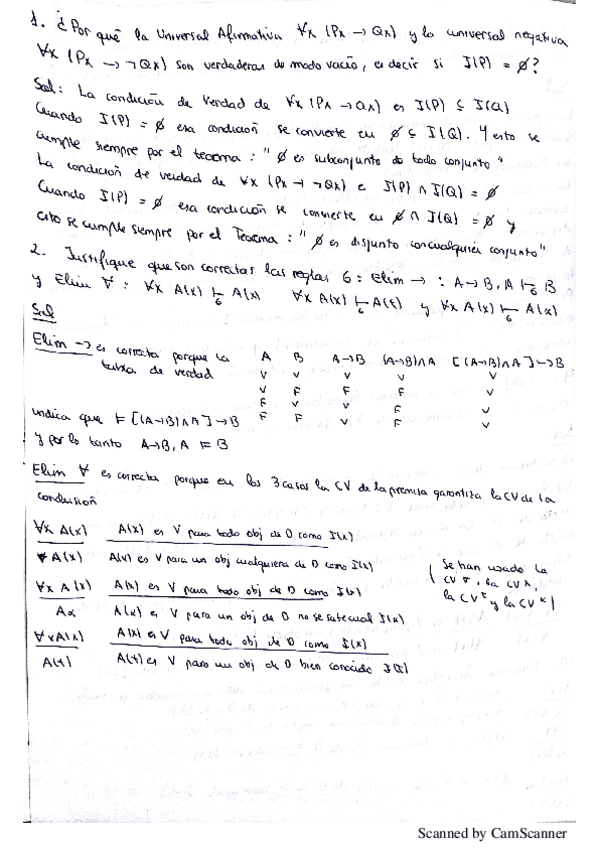 1. ¿Por qué la Universal Afirmativa ∀x (Px → Qx) y la universal negativa
∀x (Px → ¬Qx) son verdaderas de modo vacío, es decir si I(P) = ∅?
Sol: La condición de verdad de ∀x (Px → Qx) es I(P) ⊆ I(Q)
Cuando I(P) = ∅ esa condición se convierte en ∅ ⊆ I(Q). Y esto se
cumple siempre por el teorema: "∅ es subconjunto de todo conjunto"
La condición de verdad de ∀x (Px → ¬Qx) es I(P) ∩ I(Q) = ∅
Cuando I(P) = ∅ esa condición se convierte en ∅ ∩ I(Q) = ∅ y
esto se cumple siempre por el Teorema: "∅ es disjunto con cualquier conjunto"
2. Justifique que son correctas las reglas G: Elim → : A → B, A ⊢G B
y Elim ∀ : ∀x A(x) ⊢G A(x) ∀x A(x) ⊢G A(t) y ∀x A(x) ⊢G A(α)
Sol
Elim → es correcta porque la A B A→B (A→B)∧A [(A→B)∧A]→B
tabla de verdad V V V V V
V F F F V
F V V F V
indica que ⊨ [(A→B)∧A]→B F F V F V
y por lo tanto A→B, A ⊨ B
Elim ∀ es correcta porque en los 3 casos la CV de la premisa garantiza la CV de la
conclusión
∀x A(x) A(x) es V para todo obj de D como I(x)
A(x) A(x) es V para un obj cualquiera de D como I(x)
∀x A(x) A(x) es V para todo obj de D como I(x)
Aα A(α) es V para un obj de D no se sabe cual I(α)
∀x A(x) A(x) es V para todo obj de D como I(x)
A(t) A(t) es V para un obj de D bien conocido
(Se han usado la
la CV
y la CV
Scanned by CamScanner